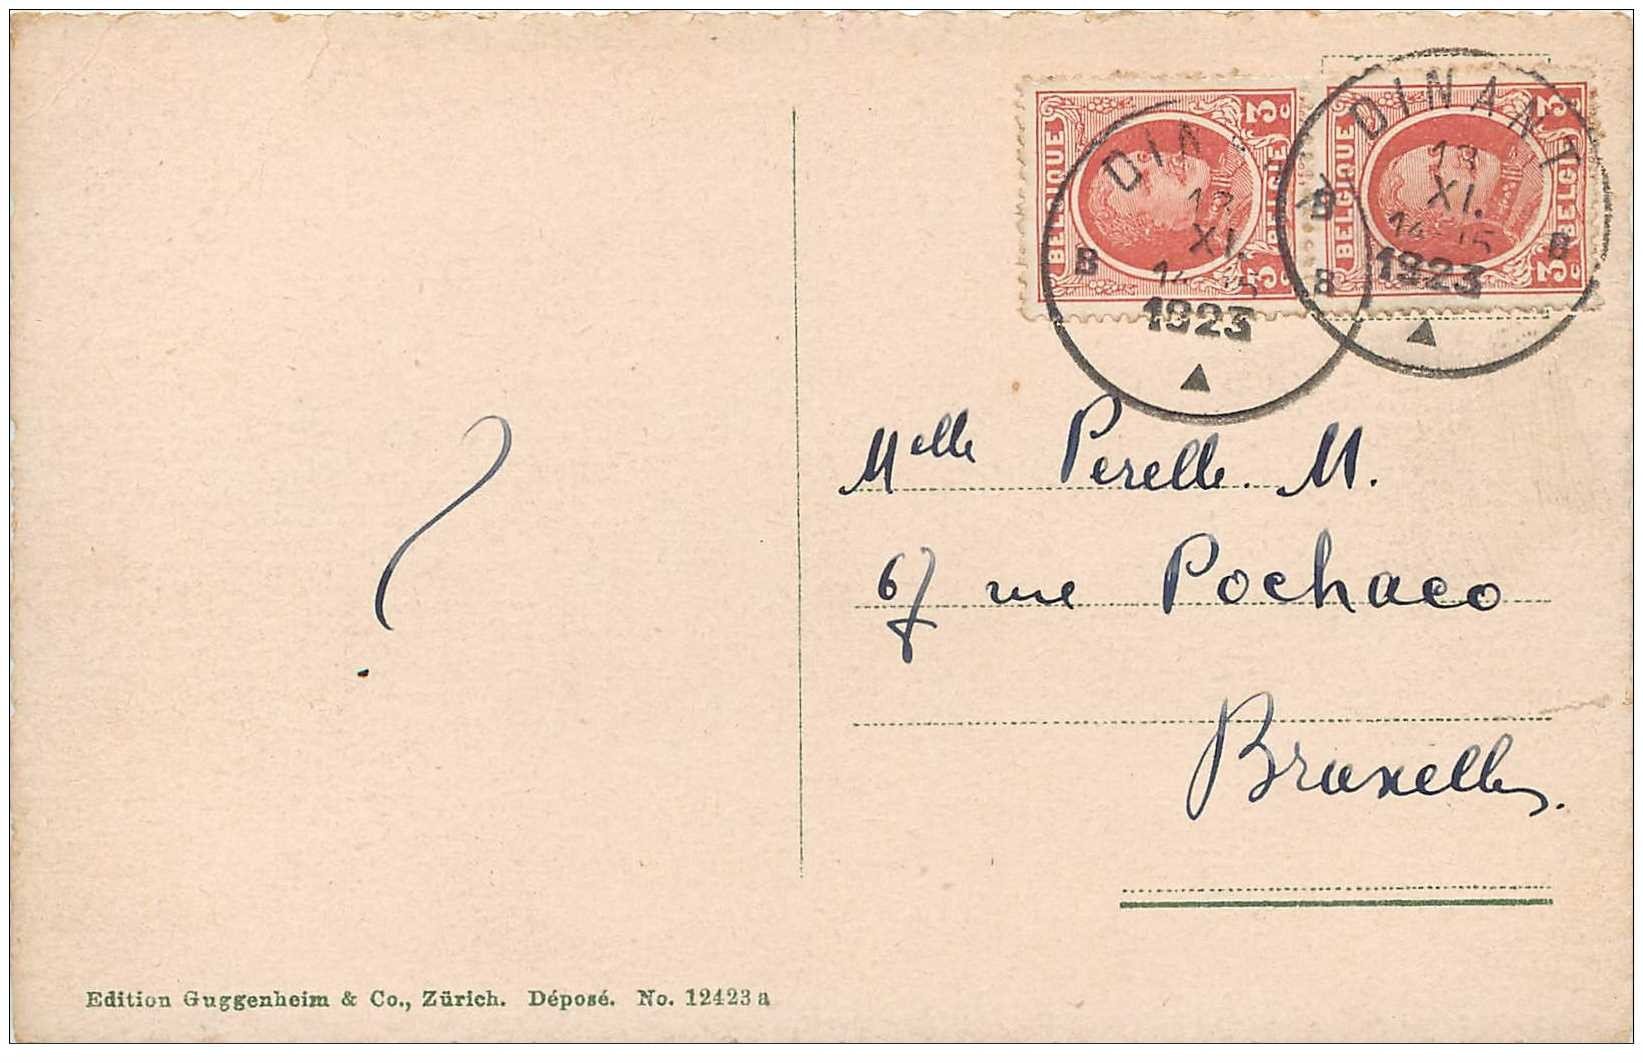 3c 3c
BELGIQUE BELGIE
3c 3c
BELGIQUE BELGIE
DINANT
13
XI.
14-15
1923
B B
DIN
13
XI.
1923
B B
Melle Perelle. M.
67 rue Pochaco
Bruxelles.
?
Edition Guggenheim & Co., Zürich. Déposé. No. 12423 a